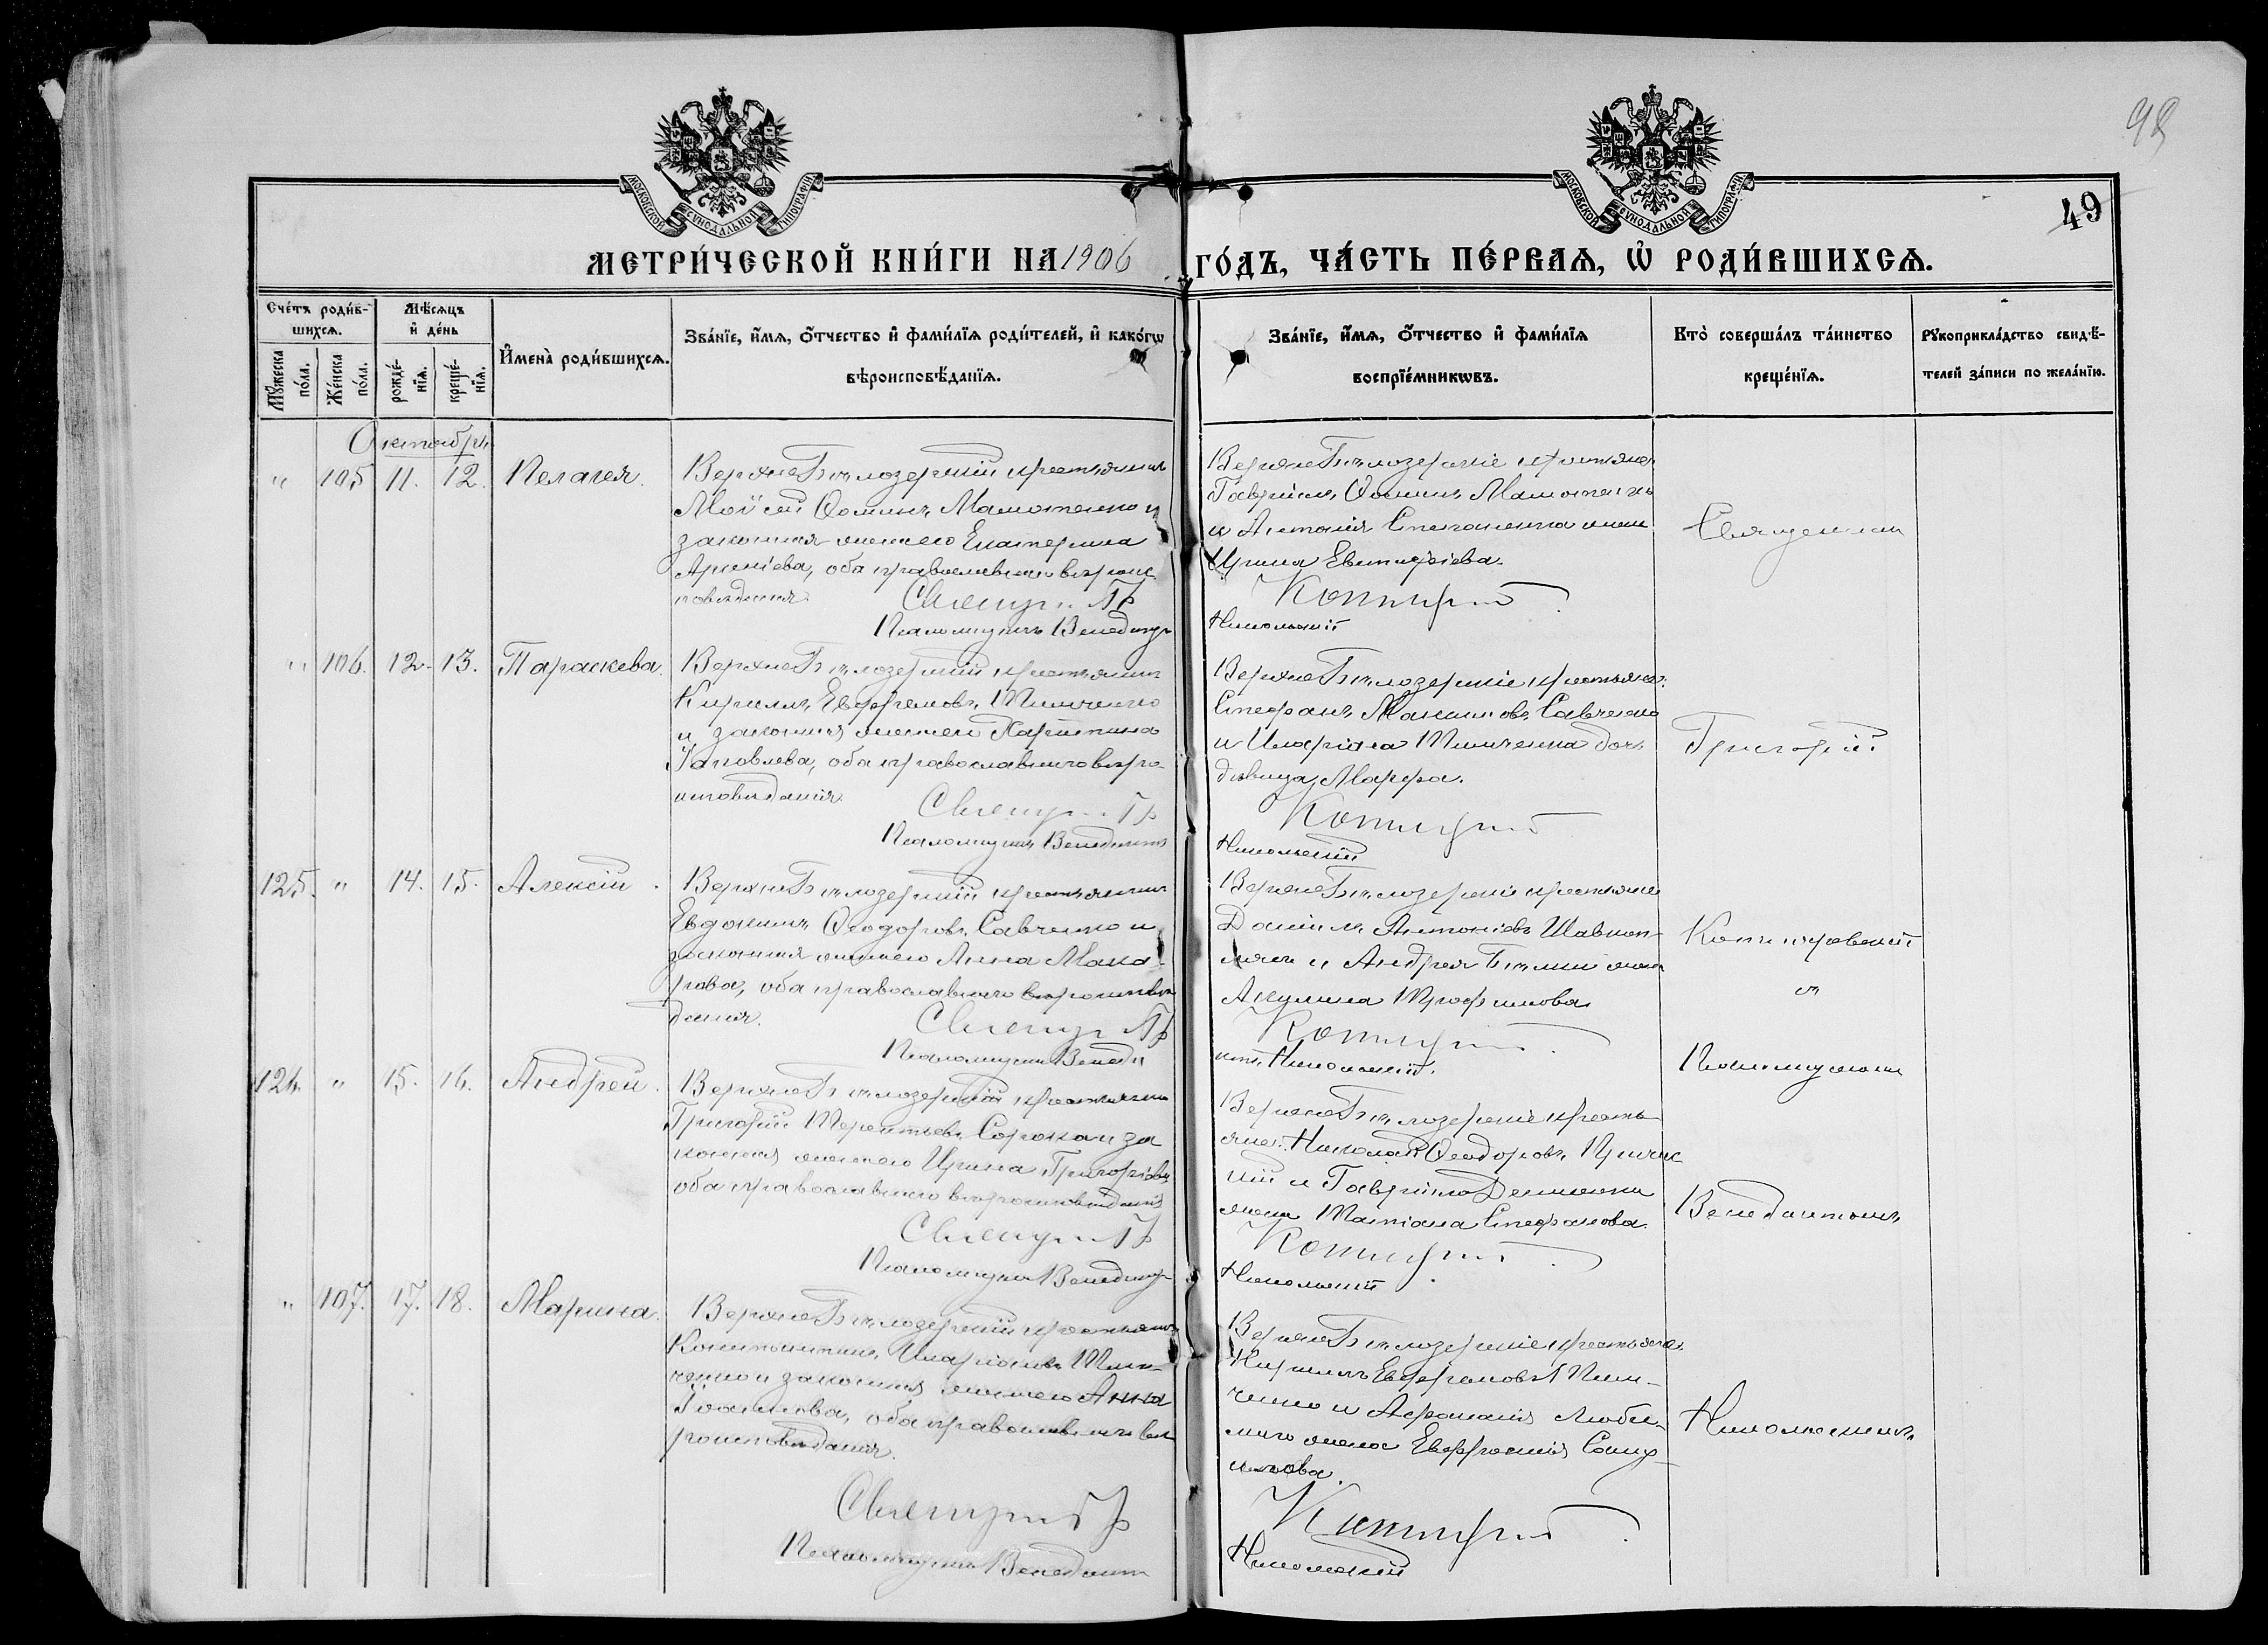 98
49
МОСКОВСКОЙ СѴНОДАЛЬНОЙ ТИПОГРАФІИ
МОСКОВСКОЙ СѴНОДАЛЬНОЙ ТИПОГРАФІИ
МЕТРИ́ЧЕСКОЙ КНИ́ГИ НА 1906 ГО́ДЪ, ЧА́СТЬ ПЕ́РВАЯ, Ѡ РОДИ́ВШИХСЯ.
Сче́тъ роди́в-
шихся.
Мꙋ́жеска по́ла.
Же́нска по́ла.
Мѣ́сяцъ
и де́нь
рожде́-
нїя.
креще́-
нїя.
И҆мена̀ роди́вшихся.
Зва́нїе, и҆́мя, ѻ҆́тчество и҆ фами́лїя роди́телей, и҆ како́гѡ
вѣроисповѣ́данїя.
Зва́нїе, и҆́мя, ѻ҆́тчество и҆ фами́лїя
воспрїе́мникѡвъ.
Кто̀ соверша́лъ та́инство
креще́нїя.
Рꙋкоприкла́дство свидѣ́-
телей за́писи по жела́нїю.
Октябрь
" 105 11. 12. Пелагея.
ВерхнеБѣлозерскій крестьянинъ
Моѵсей Ѳоминъ Мамотенко и
законная жена его Екатерина
Арсеніева, оба православнаго вѣроис-
повѣданія.
Священ. Гр
Псаломщикъ Венедикт
ВерхнеБѣлозерскіе крестьяне:
Гавріилъ Ѳоминъ Мамотенко
и Антонія Степаненка жена
Ирина Евтихіева.
Котляр
Никольскій
Священник
" 106. 12. 13. Параскева.
ВерхнеБѣлозерскій крестьянинъ
Кириллъ Евфремовъ Тимченко
и законная жена его Харитина
Іаковлева, оба православнаго вѣро-
исповѣданія.
Священ. Гр
Псаломщикъ Венедиктъ
ВерхнеБѣлозерскіе крестьяне:
Стефанъ Максимовъ Савченко
и Иларіона Тимченка дочь
дѣвица Марфа.
Котляр
Никольскій
Григорій
125. " 14. 15. Алексій.
ВерхнеБѣлозерскій крестьянинъ
Евдокимъ Ѳеодоровъ Савченко и
законная жена его Анна Мака-
рова, оба православнаго вѣроисповѣ
данія.
Священ. Гр
Псаломщикъ Венеди
ВерхнеБѣлозерскіе крестьяне
Даніилъ Антоніевъ
и Андрея жена
Акулина Трофимова.
Котляр
ктъ Никольскій.
и
126. " 15. 16. Андрей.
ВерхнеБѣлозерскій крестьянинъ
Григорій Терентьевъ Сорока и за
конная жена его Ирина Григоріева,
оба православнаго вѣроисповѣданія
Священ. Гр
Псаломщикъ Венедикт
ВерхнеБѣлозерскіе кресть-
яне: Николай Ѳеодоровъ
и Гавріила
жена Татіана Стефанова.
Котляр
Никольскій
Псаломщикъ
Венедиктомъ
" 107. 17. 18. Марина.
ВерхнеБѣлозерскій крестьянинъ
Константинъ Иларіоновъ Тим-
ченко и законная жена его Анна
Іоаннова, оба православнаго вѣ-
роисповѣданія.
Священ. Гр
Псаломщикъ Венедикт
ВерхнеБѣлозерскіе крестьяне:
Кириллъ Евфремовъ Тим-
ченко и Афанасія Люби-
маго жена Евфросинія
Котляр
Никольскій
Никольскимъ.